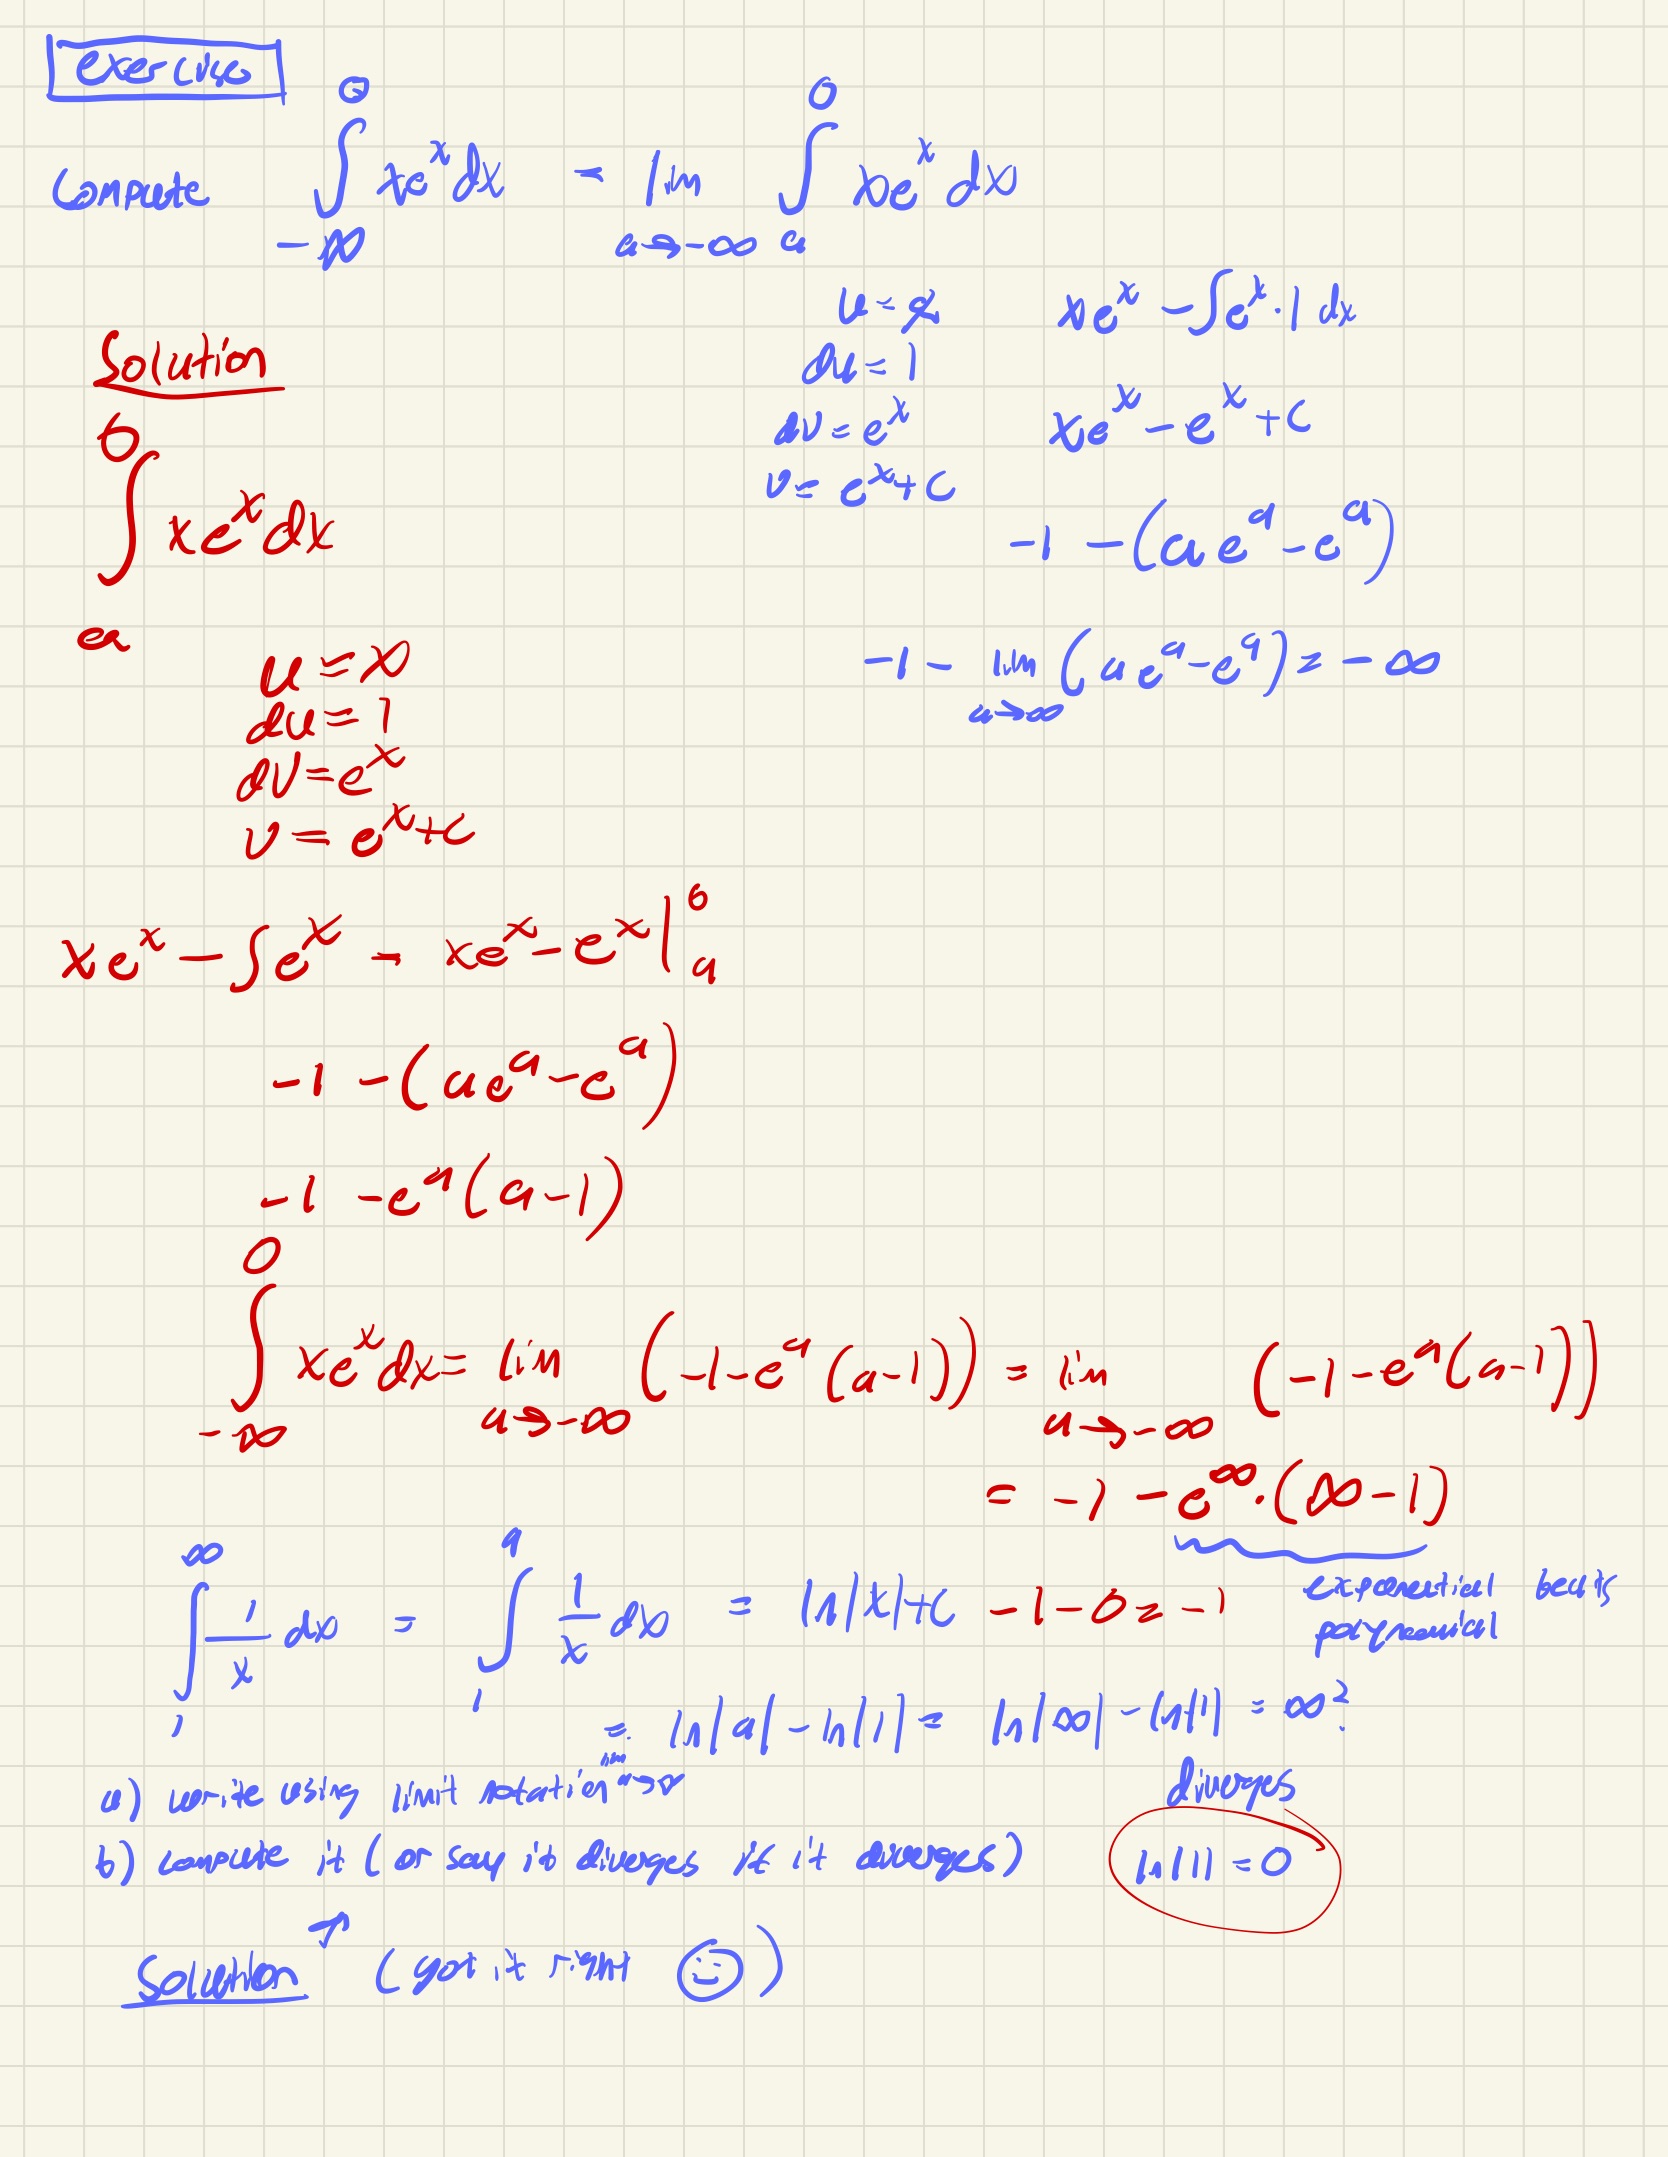 exercise
Compute ∫_{-∞}^{0} xe^x dx = lim_{a→-∞} ∫_{a}^{0} xe^x dx
u = x   xe^x - ∫e^x · 1 dx
du = 1
dv = e^x   xe^x - e^x + C
v = e^x + C
-1 - (ae^a - e^a)
-1 - lim_{a→∞} (ae^a - e^a) = -∞
Solution
∫_{a}^{0} xe^x dx
u = x
du = 1
dv = e^x
v = e^x + C
xe^x - ∫e^x = xe^x - e^x |_{a}^{0}
-1 - (ae^a - e^a)
-1 - e^a(a-1)
∫_{-∞}^{0} xe^x dx = lim_{a→-∞} (-1 - e^a(a-1)) = lim_{a→-∞} (-1 - e^a(a-1))
= -1 - e^∞ · (∞-1)
exponential beats
polynomial
-1 - 0 = -1
∫_{1}^{∞} 1/x dx = ∫_{1}^{a} 1/x dx = ln|x| + C
= lim_{a→∞} ln|a| - ln|1| = ln|∞| - ln|1| = ∞?
diverges
a) write using limit notation
b) compute it (or say it diverges if it diverges)
ln|1| = 0
Solution ↗ (got it right ☺)